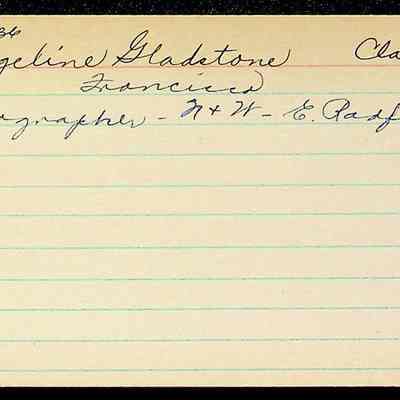 36
geline Gladstone Cla
Francisco
ographer - N+W - E. Radf